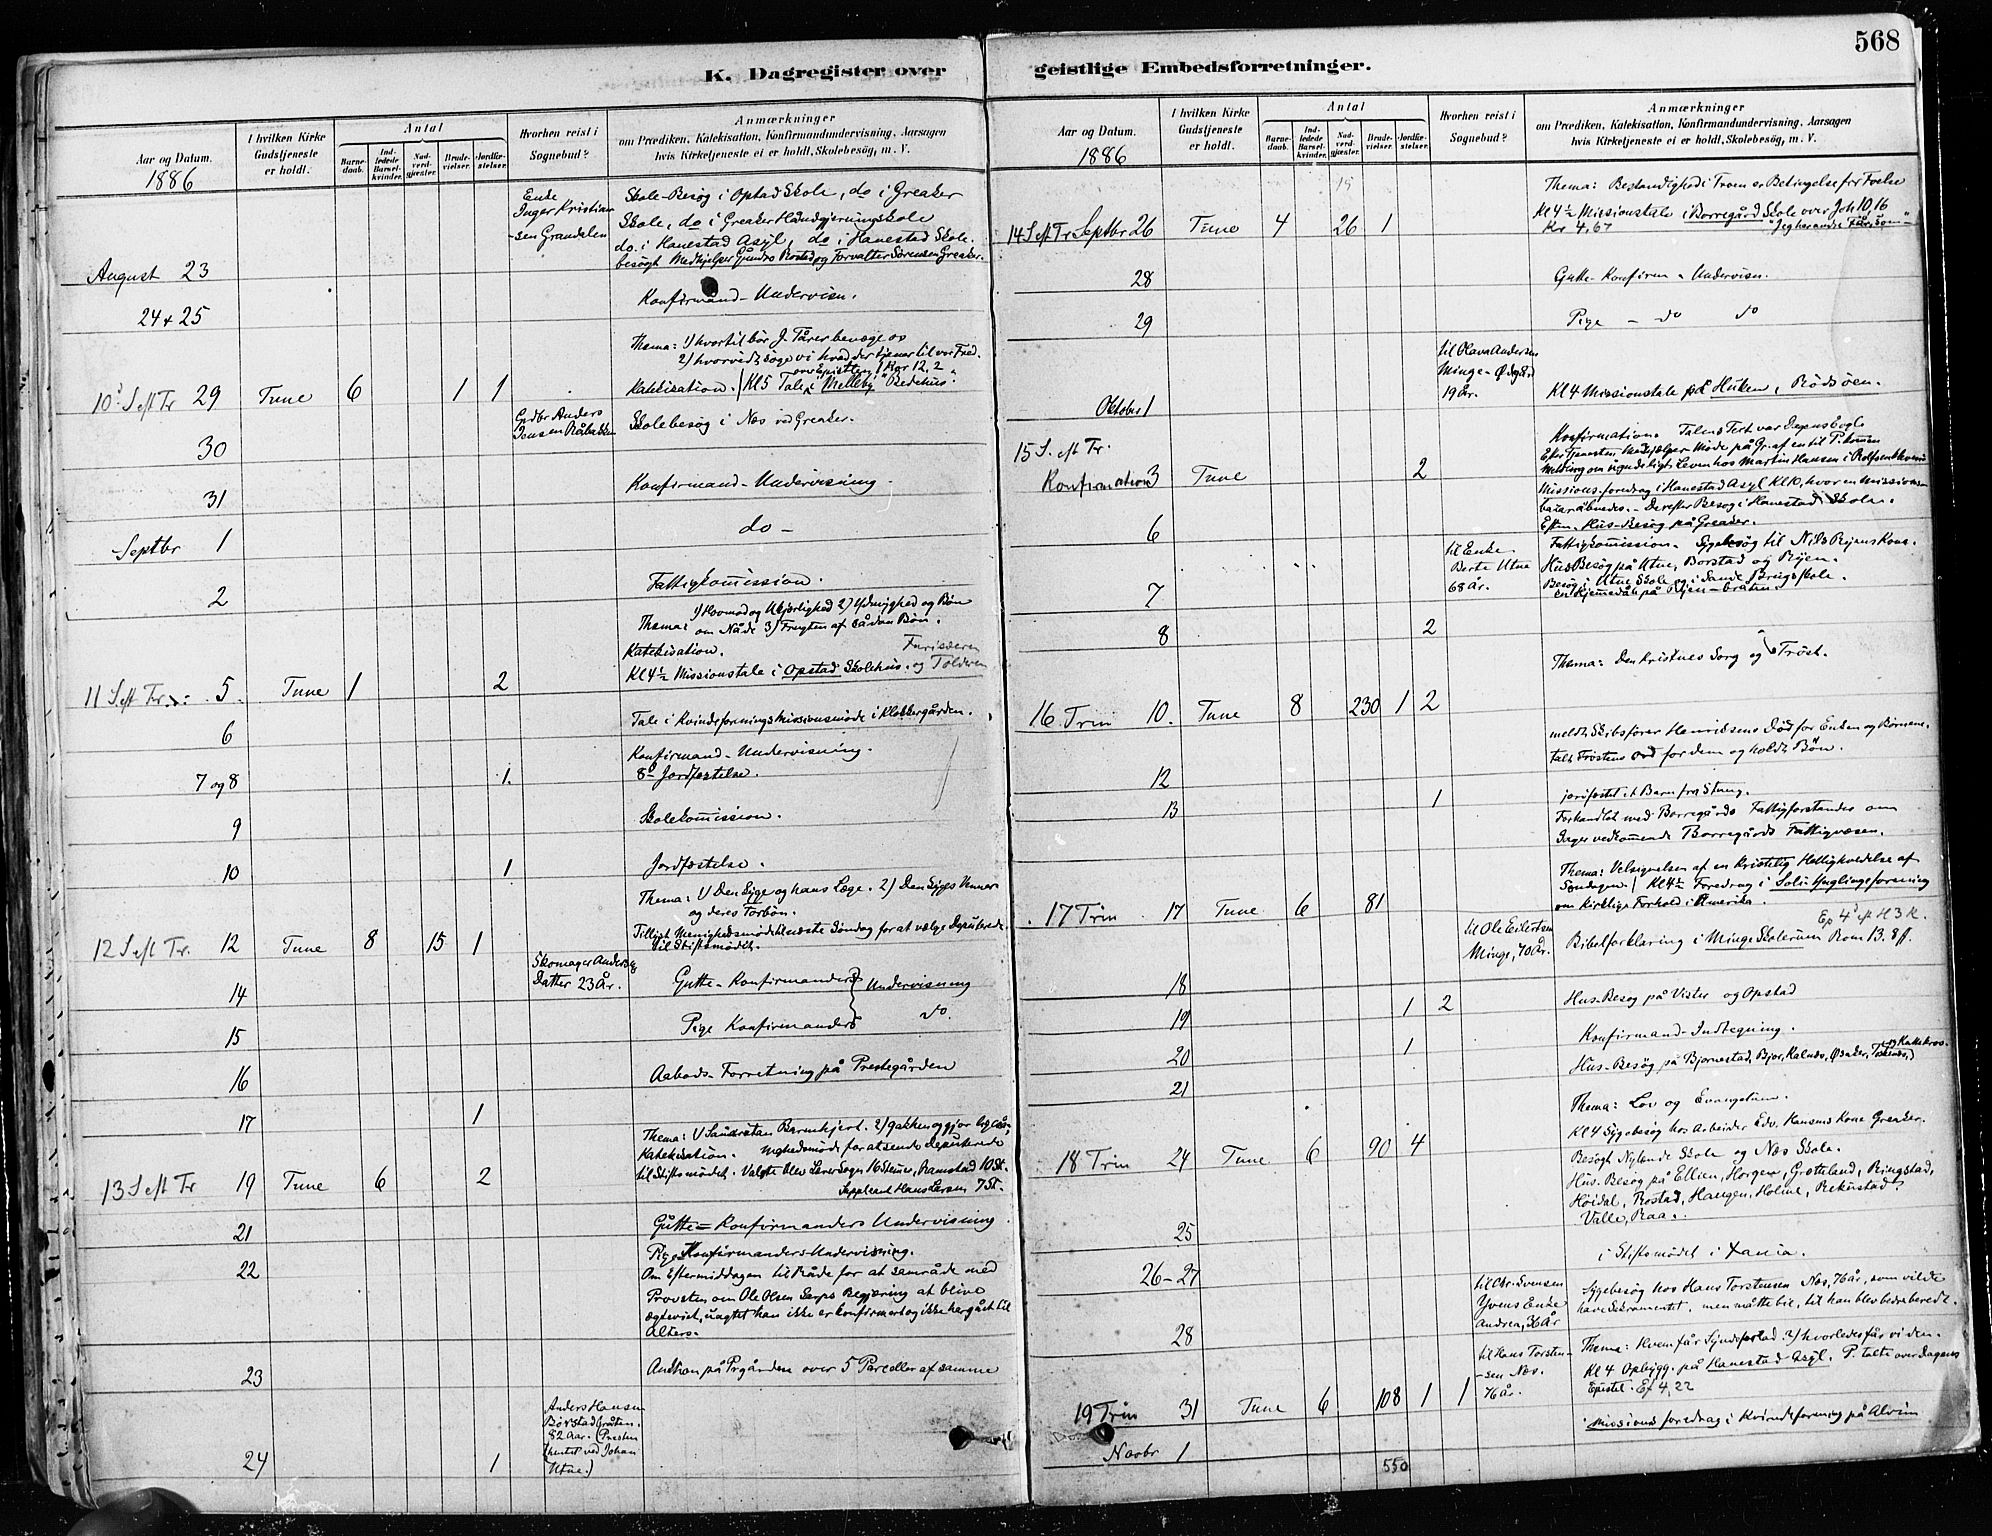 568
K. Dagregister over
geistlige Embedsforretninger.
Aar og Datum.
1886
I hvilken Kirke
Gudstjeneste
er holdt.
Antal
Barne-
daab.
Ind-
ledede
Barsel-
kvinder.
Nad-
verd-
gjæster.
Brude-
vielser.
Jordfæ-
stelser.
Hvorhen reist i
Sognebud?
Anmærkninger
om Prædiken, Katekisation, Konfirmandundervisning, Aarsagen
hvis Kirketjeneste ei er holdt, Skolebesøg, m. V.
Enke
Inger Kristian
-sen Grandalen
Skole-Besøg i Opstad Skole, do i Greaker
Skole, do i Greaker Håndgjerningskole
do. i Hanestad Asyl, do i Hanestad Skole.
besøgt Medhjelper Rostad og Forvalter Sørensen Greaker.
August 23
24 + 25
Konfirmand-Undervisn.
Thema: 1) hvortil bør J. Tårer bevæge os
2) hvorvidt søge vi hvad der tjener til vor Fred.
over Epistlen 1 Kor 12,2
Katekisation. Kl 5 Tale i Melleby Bedehus.
10 S. eft Tr 29 Tune 6 1 1
Grdbr Anders
Jensen Råbakken
Skolebesøg i Næs ved Greaker.
30
31
Konfirmand-Undervisning
Septbr 1
do -
2
Fattigkomission.
Thema: 1) Hovmod og Ukjerlighed 2) Ydmyghed og Bøn
om Nåde 3) Frugten af sådan Bøn.
Katekisation. Farisæeren
Kl 4½ Missionstale i Opstad Skolehus. og Tolderen
11 S. eft Tr. 5. Tune 1 2
6
Tale i Kvindeforenings Missionsmøde i Klokkergården.
7 og 8 1.
Konfirmand-Undervisning.
8de Jordfæstelse.
9
Skolekomission.
10 1
Jordfæstelse.
Thema: 1) Den Syge og hans Læge. 2) Den Syges Venner
og deres Forbøn.
Tilligt Menighedsmøde næste Søndag for at vælge Deputerede
til Stiftsmødet.
12 S. eft Tr. 12 Tune 8 15 1
Skomager Anders
Datter 23 År.
14
Gutte-Konfirmanders Undervisning
15
Pige Konfirmanders do.
16
Aabods-Forretning på Prestegården
17 1
Thema: 1) Samaritan Barmhjert. 2) gak hen og gjør
Katekisation. Mghedsmøde for at sende Deputerede
til Stiftsmødet. Valgte blev Lærer Sogn 16 Stemer, Ramstad 10 St.
Suppleant Hans Larsen 7 St.
13 S. eft Tr 19 Tune 6 2
21
Gutte-Konfirmanders Undervisning
22
Pige Konfirmanders-Undervisning.
Om Eftermiddagen til Råde for at samråde med
Provsten om Ole Olsen Sarps Begjæring at blive
ægteviet, uagtet han ikke er konfirmert og ikke har gået til
Alters.
23
Auktion på Prgården over 5 Parceller af samme
Anders Hansen
Børstad bråten.
82 Aar. (Presten
hentet ved Johan
Utne.)
24 1
Aar og Datum.
1886
I hvilken Kirke
Gudstjeneste
er holdt.
Antal
Barne-
daab.
Ind-
ledede
Barsel-
kvinder.
Nad-
verd-
gjæster.
Brude-
vielser.
Jordfæ-
stelser.
Hvorhen reist i
Sognebud?
Anmærkninger
om Prædiken, Katekisation, Konfirmandundervisning, Aarsagen
hvis Kirketjeneste ei er holdt, Skolebesøg, m. V.
15
Thema: Bestandighed i Troen er Betingelse for Frelse
Kl 4½ Missionstale i Borregård Skole over Joh 10,16
Kr 4,67 "Jeg har andre Får, som"
14 S. eft Tr Septbr 26 Tune 4 26 1
28
Gutte-Konfirm. Undervisn.
29
Pige - do do
til Olava Andersen
Minge-Ødegård
19 År.
Kl 4 Missionstale på Huken, Rødsøen.
Oktober 1
15 S. eft Tr.
Konfirmation 3 Tune 2
Konfirmation. Talens Text var Dagens Evgl.
Efter tjenesten Medhjælper Møde på Gr. af en til P. komen
Melding om usædeligt Levn hos Martin Hansen i
Missions-foredrag i Hanestad Asyl Kl 10, hvor en Missions
bazar åbnedes. - Derefter Besøg i Hanestad Skole.
Eftm. Hus-Besøg på Greaker.
6
til Enke
Berte Utne
68 År.
Fattigkomission. Sygebesøg til Nils Ryens Kone.
Hus Besøg på Utne, Borstad og Ryen.
Besøg i Utne Skole og i Sande Brugsskole.
en Hjemmedåb på Ryen-bråten.
7
8 2
Thema: Den Kristnes Sorg og Trøst.
16 Trin 10. Tune 8 230 1 2
meldt Skibsfører Henriksens Død for Enken og Børnene.
talt Trøstens ord for dem og holdt Bøn.
12
13 1
jordfæstet et Barn fra Stung.
Forhandlet med Borregårds Fattigforstander om
Sager vedkomende Borregårds Fattigvæsen.
Thema: Velsignelsen af en kristelig Helligholdelse af
Søndagen. Kl 4½ Foredrag i Soli Ynglingeforening
om kirkelige Forhold i Amerika.
17 Trin 17 Tune 6 81
Ep 4 S eft H 3 K.
til Ole Eilertsen
Minge, 70 År.
Bibelforklaring i Minge Skolerum Rom 13. 8 ff.
18
19 1 2
Hus-Besøg på Vister og Opstad
20 1
Konfirmand-Indtegning.
21
Hus-Besøg på Bjørnestad, Bjor, Kalnæs,
Thema: Lov og Evangelium.
Kl 4 Sygebesøg hos Arbeider Edv. Hansens Kone Greaker.
18 Trin 24 Tune 6 90 4
Besøgt Nylende Skole og Næs Skole.
Hus-Besøg på Ellien, Horgen, Grotteland, Ringstad,
Høidal, Rostad, Haugen, Holme, Rekustad,
Valle, Raa.
25
26-27
i Stiftsmødet i Xania.
til Chr. Svensen
Yvens Enke
Andrea, 76 År
Sygebesøg hos Hans Torstensen Næs, 76 år, som vilde
have Sakramentet, men måtte bie, til han blev bedre beredt.
28
til Hans Torsten-
-sen Næs.
76 år.
Thema: Hvem får Synds forlad. 2) hvorledes får vi den.
Kl 4 Opbygg. på Hanestad Asyl. P. talte over dagens
Epistel. Ef 4,22
19 Trin 31 Tune 6 108 1 1
Missions foredrag i Kvindeforening på Alvim
Novbr 1
550